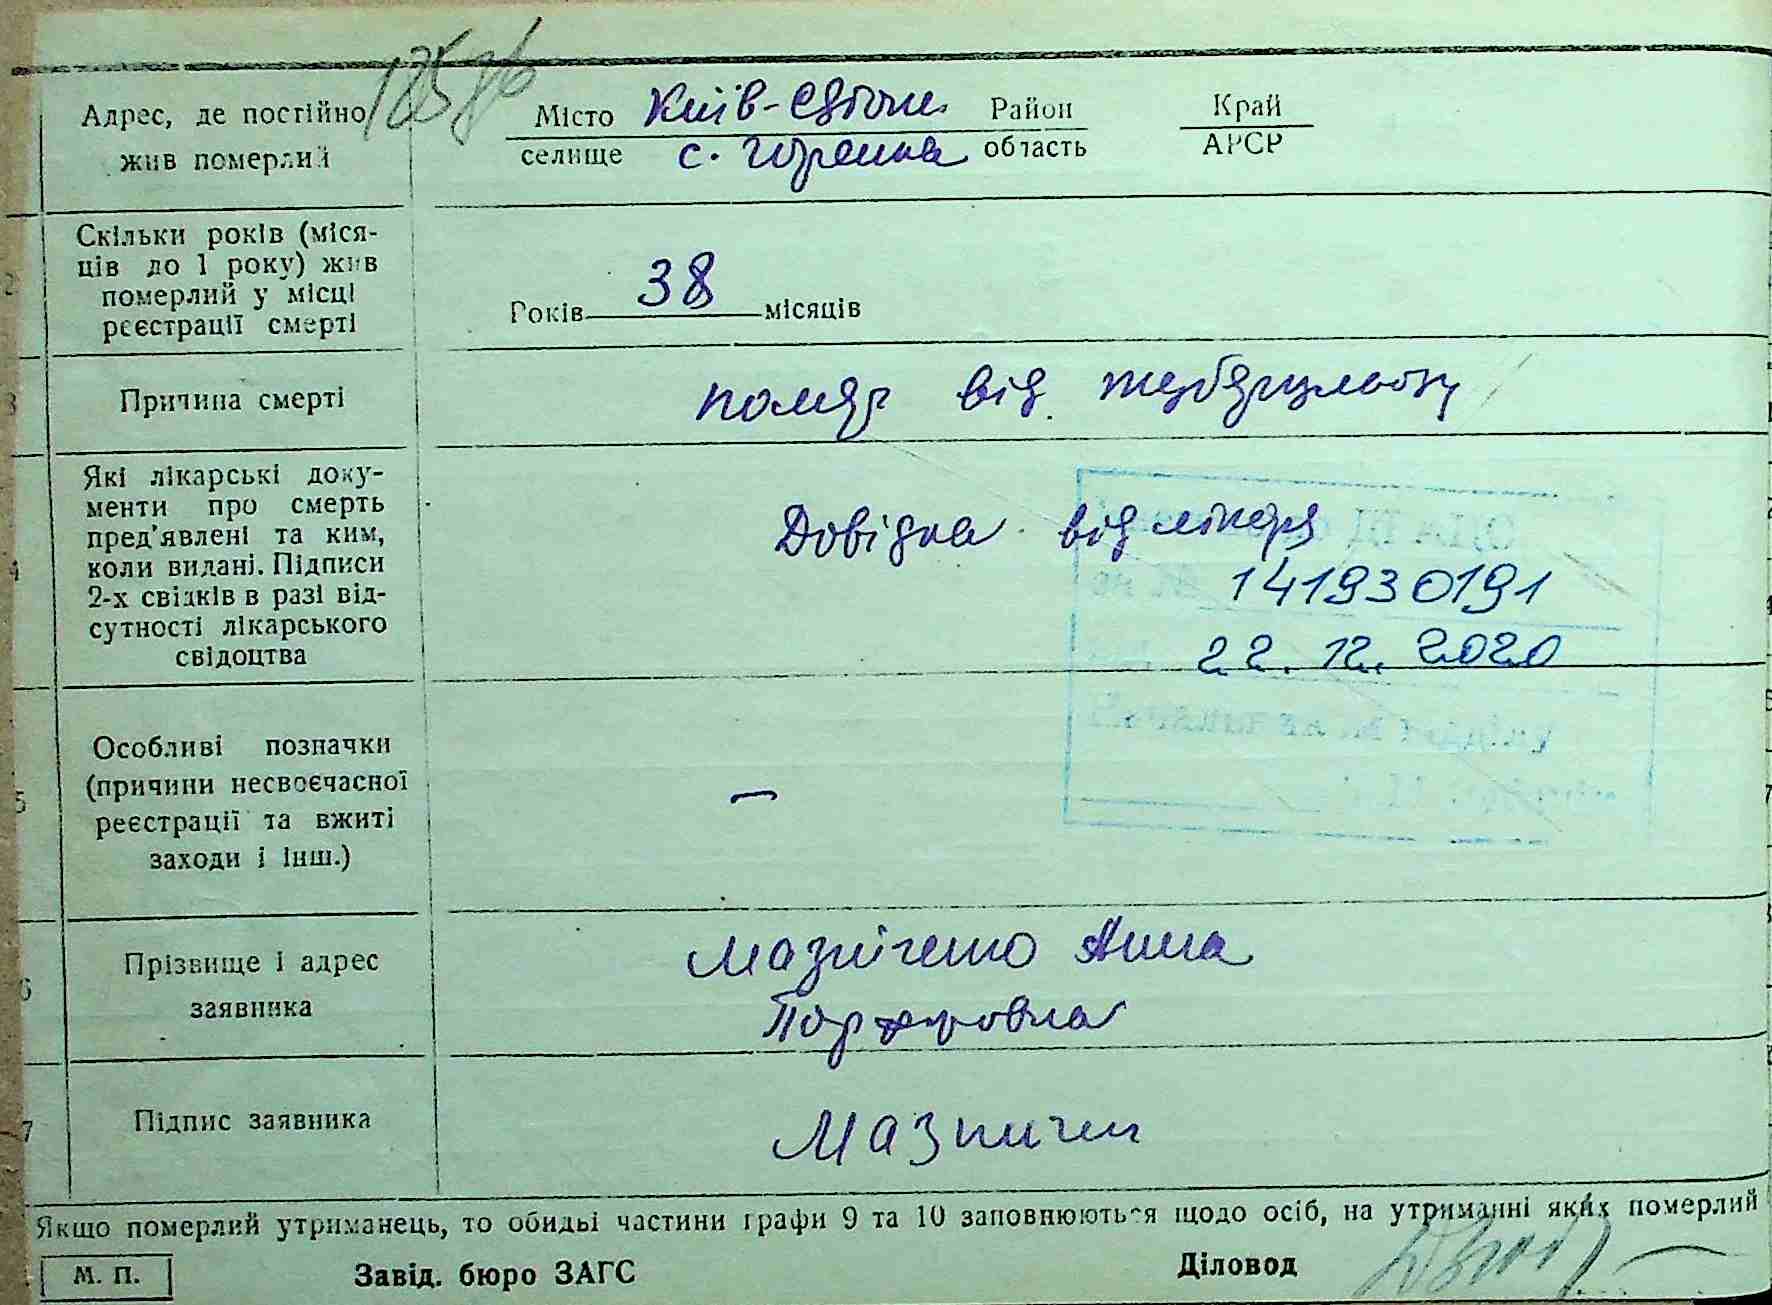 Адрес, де постійно
жив померлий
Місто Київ-Святош. Район
селище с. Горенка область
Край
АРСР
Скільки років (міся-
ців до 1 року) жив
померлий у місці
реєстрації смерті
Років 38 місяців
Причина смерті
помер від туберкульозу
Які лікарські доку-
менти про смерть
пред'явлені та ким,
коли видані. Підписи
2-х свідків в разі від-
сутності лікарського
свідоцтва
Довідка від лікаря
141930191
22.12.2020
Особливі позначки
(причини несвоєчасної
реєстрації та вжиті
заходи і інш.)
–
Прізвище і адрес
заявника
Мазніченко Анна
Підпис заявника
Мазничен
Якщо померлий утриманець, то обидві частини графи 9 та 10 заповнюються щодо осіб, на утриманні яких померлий
М. П.
Завід. бюро ЗАГС
Діловод